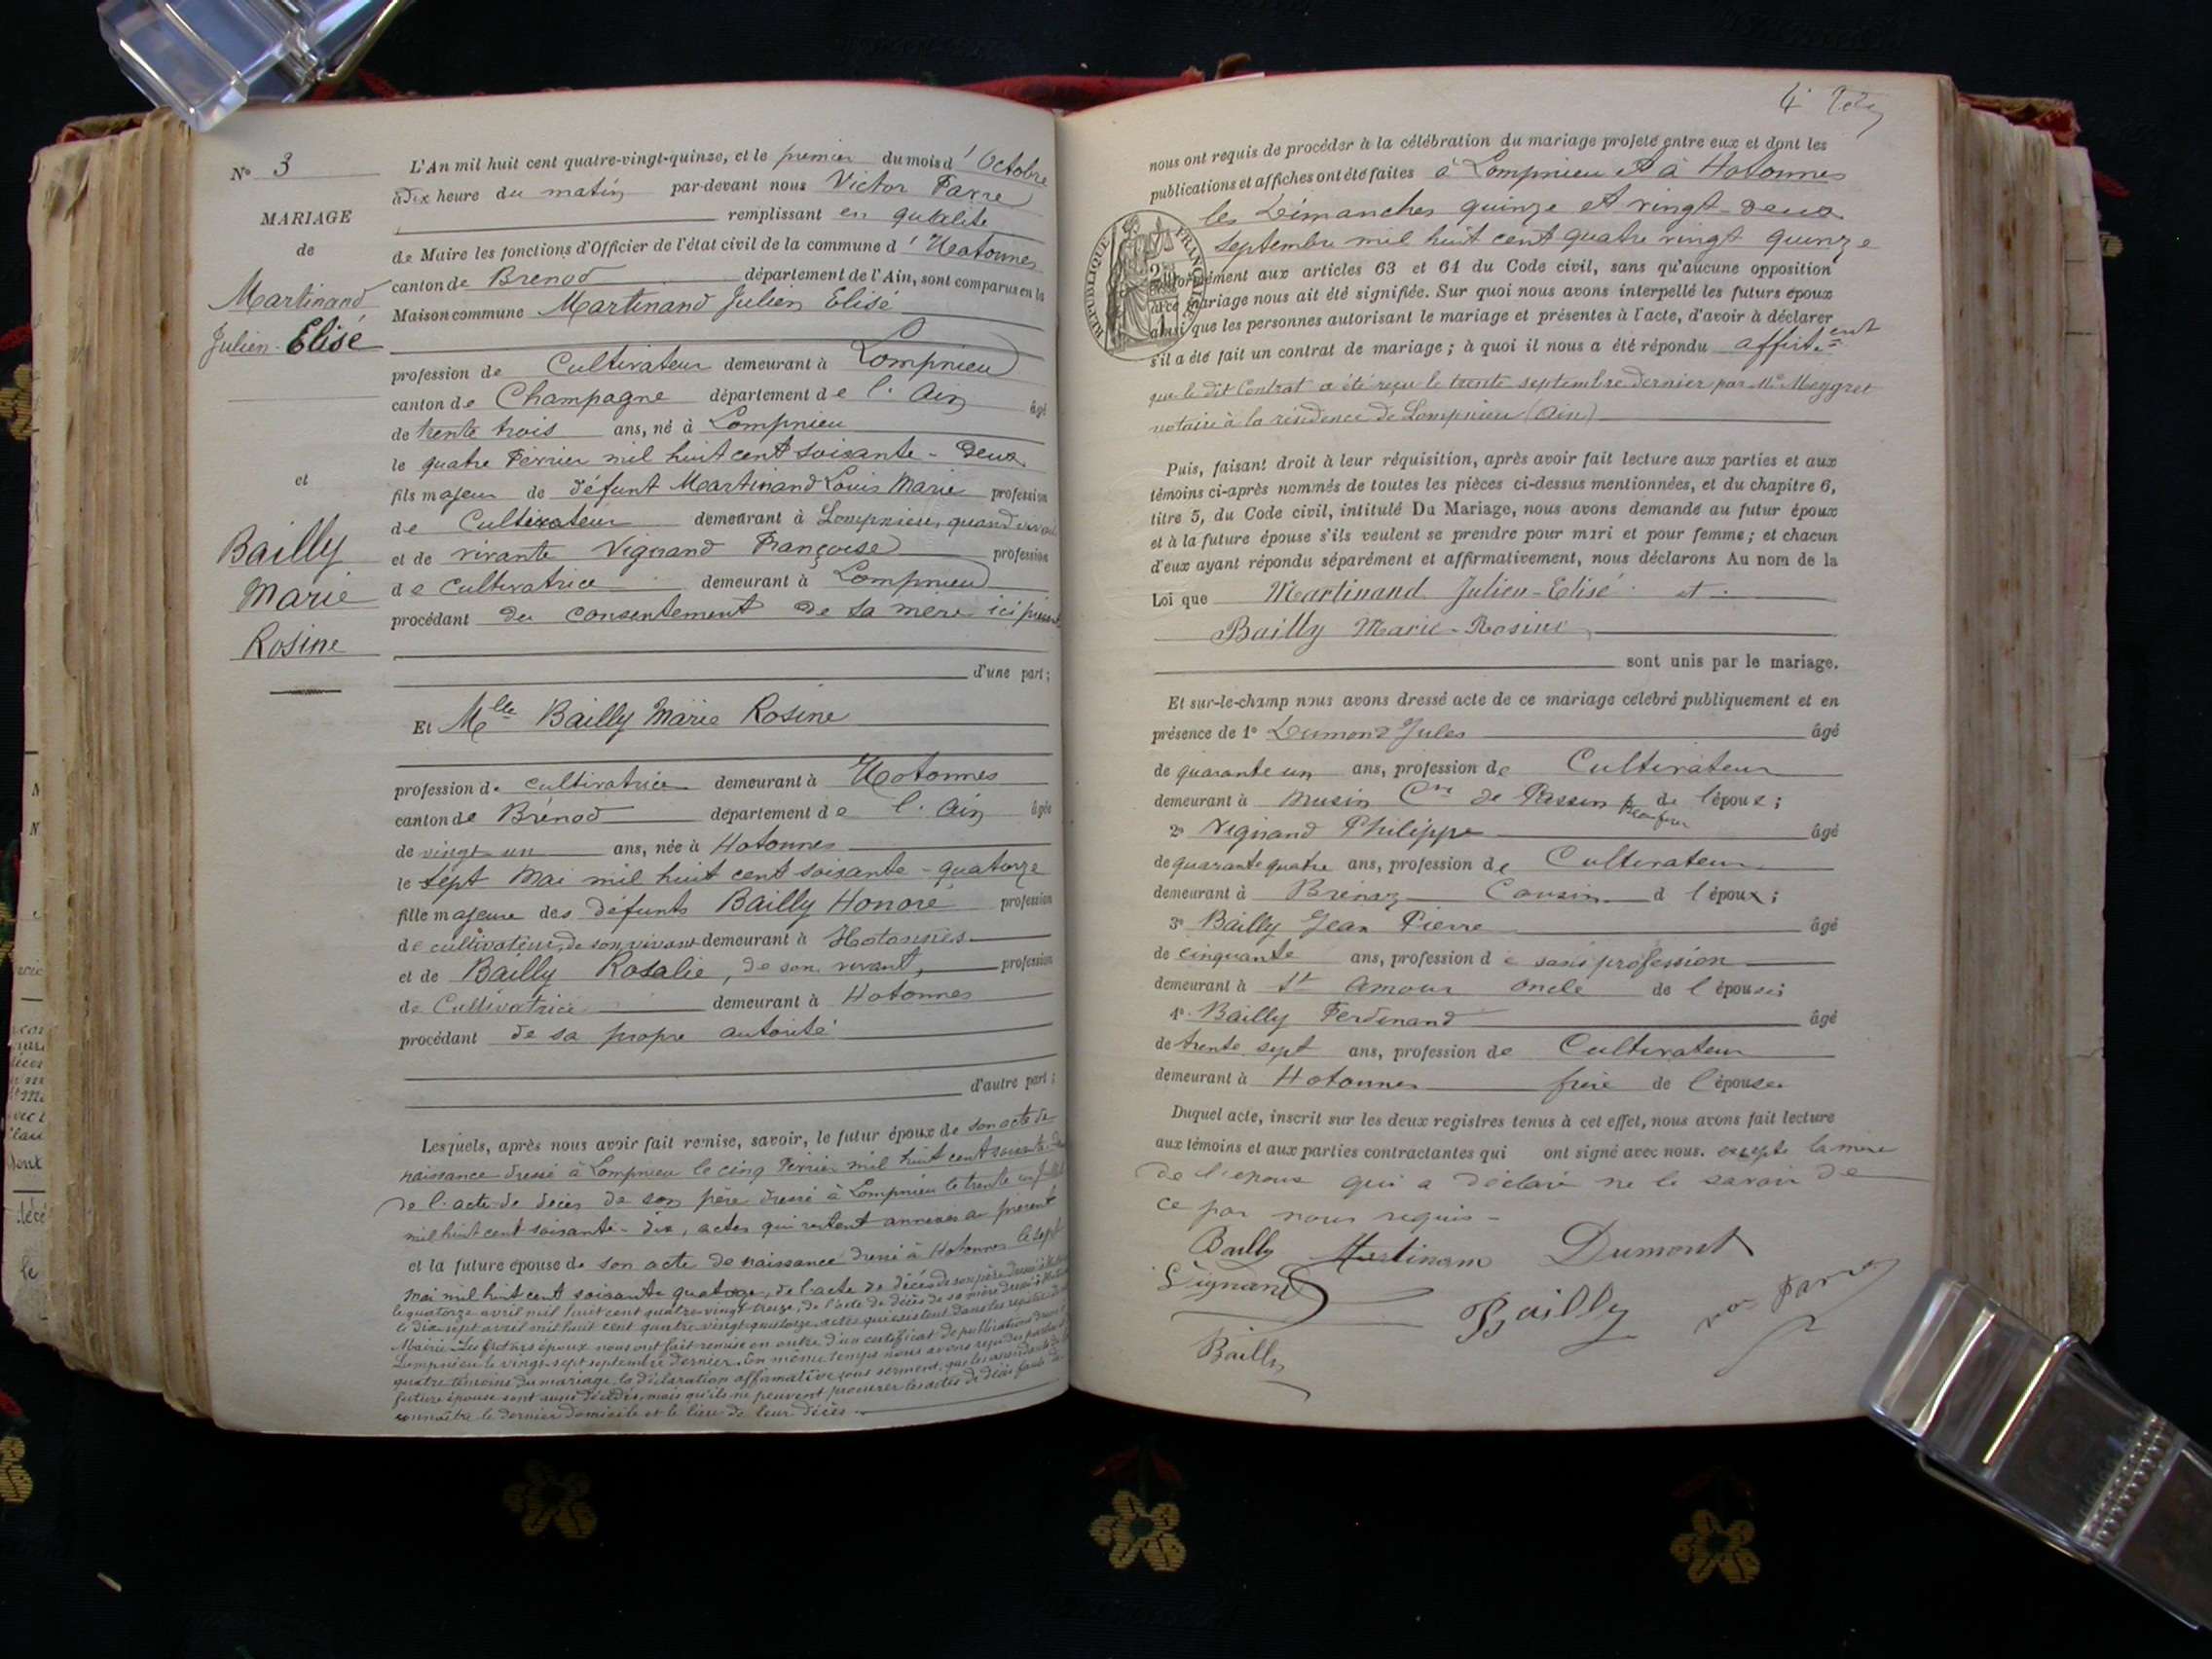 N° 3
MARIAGE
de
Martinand
Julien Elisé
et
Bailly
Marie
Rosine
L'An mil huit cent quatre-vingt-quinze, et le premier du mois d' Octobre
à Dix heure du matin par-devant nous Victor Favre
remplissant en qualité
de Maire les fonctions d'Officier de l'état civil de la commune d' Hotonnes
canton de Brenod département de l'Ain, sont comparus en la
Maison commune Martinand Julien Elisé
profession de Cultivateur demeurant à Lompnieu
canton de Champagne département de l'Ain âgé
de trente trois ans, né à Lompnieu
le quatre Février mil huit cent soixante-deux
fils majeur de défunt Martinand Louis Marie profession
de Cultivateur demeurant à Lompnieu, quand vivait
et de vivante Vignand Françoise profession
de cultivatrice demeurant à Lompnieu
procédant du consentement de sa mère ici présente
d'une part;
Et Mlle Bailly Marie Rosine
profession de cultivatrice demeurant à Hotonnes
canton de Brénod département de l'Ain âgée
de vingt un ans, née à Hotonnes
le sept Mai mil huit cent soixante-quatorze
fille majeure des défunts Bailly Honoré profession
de cultivateur, de son vivant demeurant à Hotonnes
et de Bailly Rosalie, de son vivant, profession
de Cultivatrice demeurant à Hotonnes
procédant de sa propre autorité
d'autre part;
Lesquels, après nous avoir fait remise, savoir, le futur époux de son acte de
naissance dressé à Lompnieu le cinq Février mil huit cent soixante-deux
de l'acte de décès de son père dressé à Lompnieu le trente un Juillet
mil huit cent soixante-dix, actes qui restent annexés au présent
et la future épouse de son acte de naissance dressé à Hotonnes le sept
mai mil huit cent soixante quatorze, de l'acte de décès de son père dressé à
le quatorze avril mil huit cent quatre vingt treize, de l'acte de décès de sa mère dressé à
le dix sept avril mil huit cent quatre vingt quatorze, actes qui existent dans les registres de
Mairie. Les futurs époux nous ont fait remise en outre d'un certificat de publications dressé à
Lompnieu le vingt sept septembre dernier. En même temps nous avons reçu des parties et
quatre témoins du mariage, la déclaration affirmative sous serment, que les ascendants de la
future épouse sont aussi décédés, mais qu'ils ne peuvent procurer les actes de décès faute de
connaître le dernier domicile et le lieu de leur décès.
4e
nous ont requis de procéder à la célébration du mariage projeté entre eux et dont les
publications et affiches ont été faites à Lompnieu et à Hotonnes
les Dimanches quinze et vingt-deux
septembre mil huit cent quatre vingt quinze
RÉPUBLIQUE FRANÇAISE
conformément aux articles 63 et 64 du Code civil, sans qu'aucune opposition
à ce mariage nous ait été signifiée. Sur quoi nous avons interpellé les futurs époux
ainsi que les personnes autorisant le mariage et présentes à l'acte, d'avoir à déclarer
s'il a été fait un contrat de mariage; à quoi il nous a été répondu affirt.ent
que le dit Contrat a été reçu le trente septembre dernier par Me Meygret
notaire à la résidence de Lompnieu (Ain)
Puis, faisant droit à leur réquisition, après avoir fait lecture aux parties et aux
témoins ci-après nommés de toutes les pièces ci-dessus mentionnées, et du chapitre 6,
titre 5, du Code civil, intitulé Du Mariage, nous avons demandé au futur époux
et à la future épouse s'ils veulent se prendre pour mari et pour femme; et chacun
d'eux ayant répondu séparément et affirmativement, nous déclarons Au nom de la
Loi que Martinand Julien-Elisé et
Bailly Marie-Rosine
sont unis par le mariage.
Et sur-le-champ nous avons dressé acte de ce mariage célébré publiquement et en
présence de 1° Dumont Jules âgé
de quarante un ans, profession de Cultivateur
demeurant à Musin Cne de Passin Beaufrère de l'époux;
2° Vignand Philippe âgé
de quarante quatre ans, profession de Cultivateur
demeurant à Brénaz Cousin d l'époux;
3° Bailly Jean Pierre âgé
de cinquante ans, profession de sans profession
demeurant à St Amour oncle de l'épouse;
4° Bailly Ferdinand âgé
de trente sept ans, profession de Cultivateur
demeurant à Hotonnes frère de l'épouse
Duquel acte, inscrit sur les deux registres tenus à cet effet, nous avons fait lecture
aux témoins et aux parties contractantes qui ont signé avec nous. excepté la mère
de l'époux qui a déclaré ne le savoir de
ce par nous requis-
Bailly Martinand Dumont
Vignand Bailly Favre
Bailly